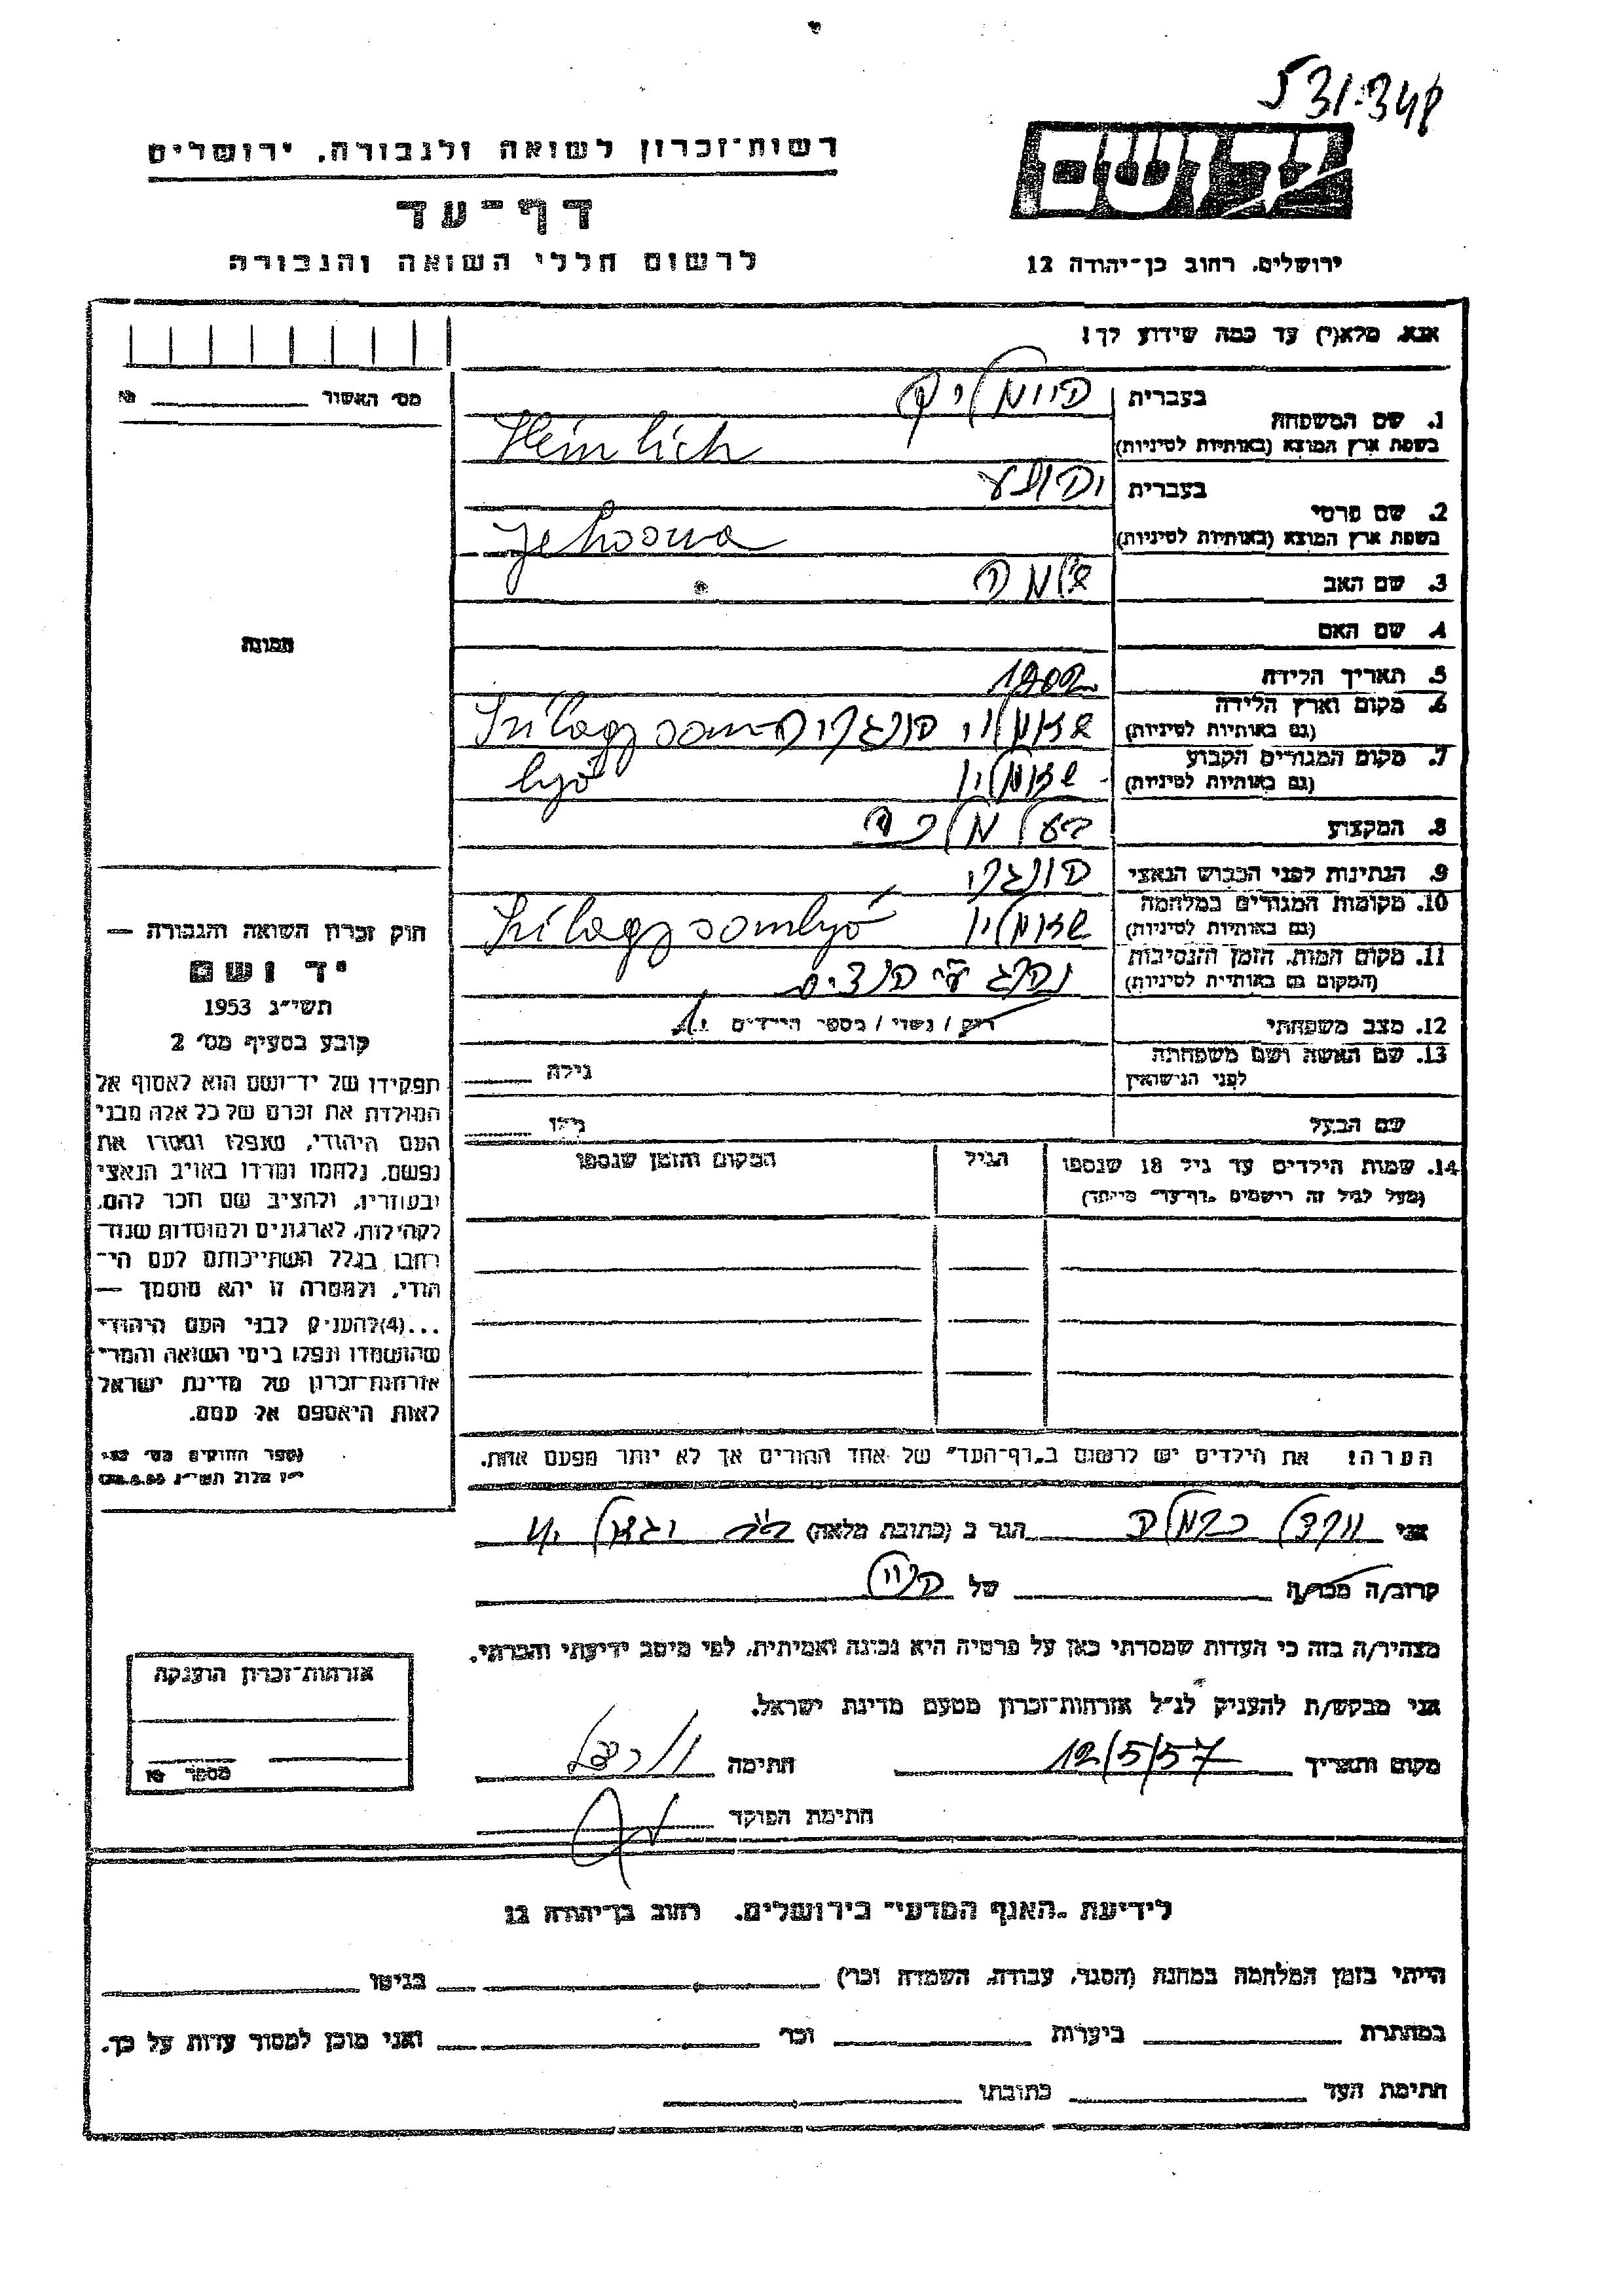 531.348
רשות־זכרון לשואה ולגבורה, ירושלים
דף־עד
לרשום חללי השואה והגבורה
יד ושם
ירושלים, רחוב בן־יהודה 12
אנא, מלא(י) עד כמה שידוע לך!
מס' האשור № 
1. שם המשפחה
בעברית היימליך
בשפת ארץ המוצא (באותיות לטיניות) Heimlich
2. שם פרטי
בעברית יהושע
בשפת ארץ המוצא (באותיות לטיניות) Jehosua
3. שם האב שלמה
4. שם האם
5. תאריך הלידה 1902
6. מקום וארץ הלידה
(גם באותיות לטיניות) הונגריה Szilagysom-
7. מקום המגורים הקבוע
(גם באותיות לטיניות) lyó
8. המקצוע בעל מלאכה
9. הנתינות לפני הכבוש הנאצי הונגרי
10. מקומות המגורים במלחמה
(גם באותיות לטיניות) Szilagysomlyó
11. מקום המות, הזמן והנסיבות
(המקום גם באותיות לטיניות) נהרג ע"י הנצים
12. מצב משפחתי רווק / נשוי / מספר הילדים
13. שם האשה ושם משפחתה
לפני הנישואין גילה
שם הבעל גילו
14. שמות הילדים עד גיל 18 שנספו הגיל המקום והזמן שנספו
(מעל לגיל זה רישמים "דף־עד" מיוחד)
הערה! את הילדים יש לרשום ב"דף־העד" של אחד ההורים אך לא יותר מפעם אחת.
תמונה
חוק זכרון השואה והגבורה —
יד ושם
תשי"ג 1953
קובע בסעיף מס' 2
תפקידו של יד־ושם הוא לאסוף אל
המולדת את זכרם של כל אלה מבני
העם היהודי, שנפלו ומסרו את
נפשם, נלחמו ומרדו באויב הנאצי
ובעוזריו, ולהציב שם וזכר להם,
לקהילות, לארגונים ולמוסדות שנח־
רבו בגלל השתייכותם לעם הי־
הודי, ולמטרה זו יהא מוסמך —
...(4) להעניק לבני העם היהודי
שהושמדו ונפלו בימי השואה והמרי
אזרחות־זכרון של מדינת ישראל
לאות היאספם אל עמם.
(ספר החוקים מס' 132,
י"ז אלול תשי"ג 28.8.53)
אני כרמלה הגר ב (כתובת מלאה)
קרוב/ה מכר/ה של
מצהיר/ה בזה כי העדות שמסרתי כאן על פרטיה היא נכונה ואמיתית, לפי מיטב ידיעתי והכרתי.
אני מבקש/ת להעניק לנ"ל אזרחות־זכרון מטעם מדינת ישראל.
מקום ותאריך 12/5/57 חתימה
חתימת הפוקד
אזרחות־זכרון הוענקה
מספר №
לידיעת "האגף המדעי" בירושלים, רחוב בן־יהודה 12
הייתי בזמן המלחמה במחנה (הסגר, עבודה, השמדה וכו') בגיטו
במחתרת ביערות וכו' ואני מוכן למסור עדות על כך.
חתימת העד כתובתו